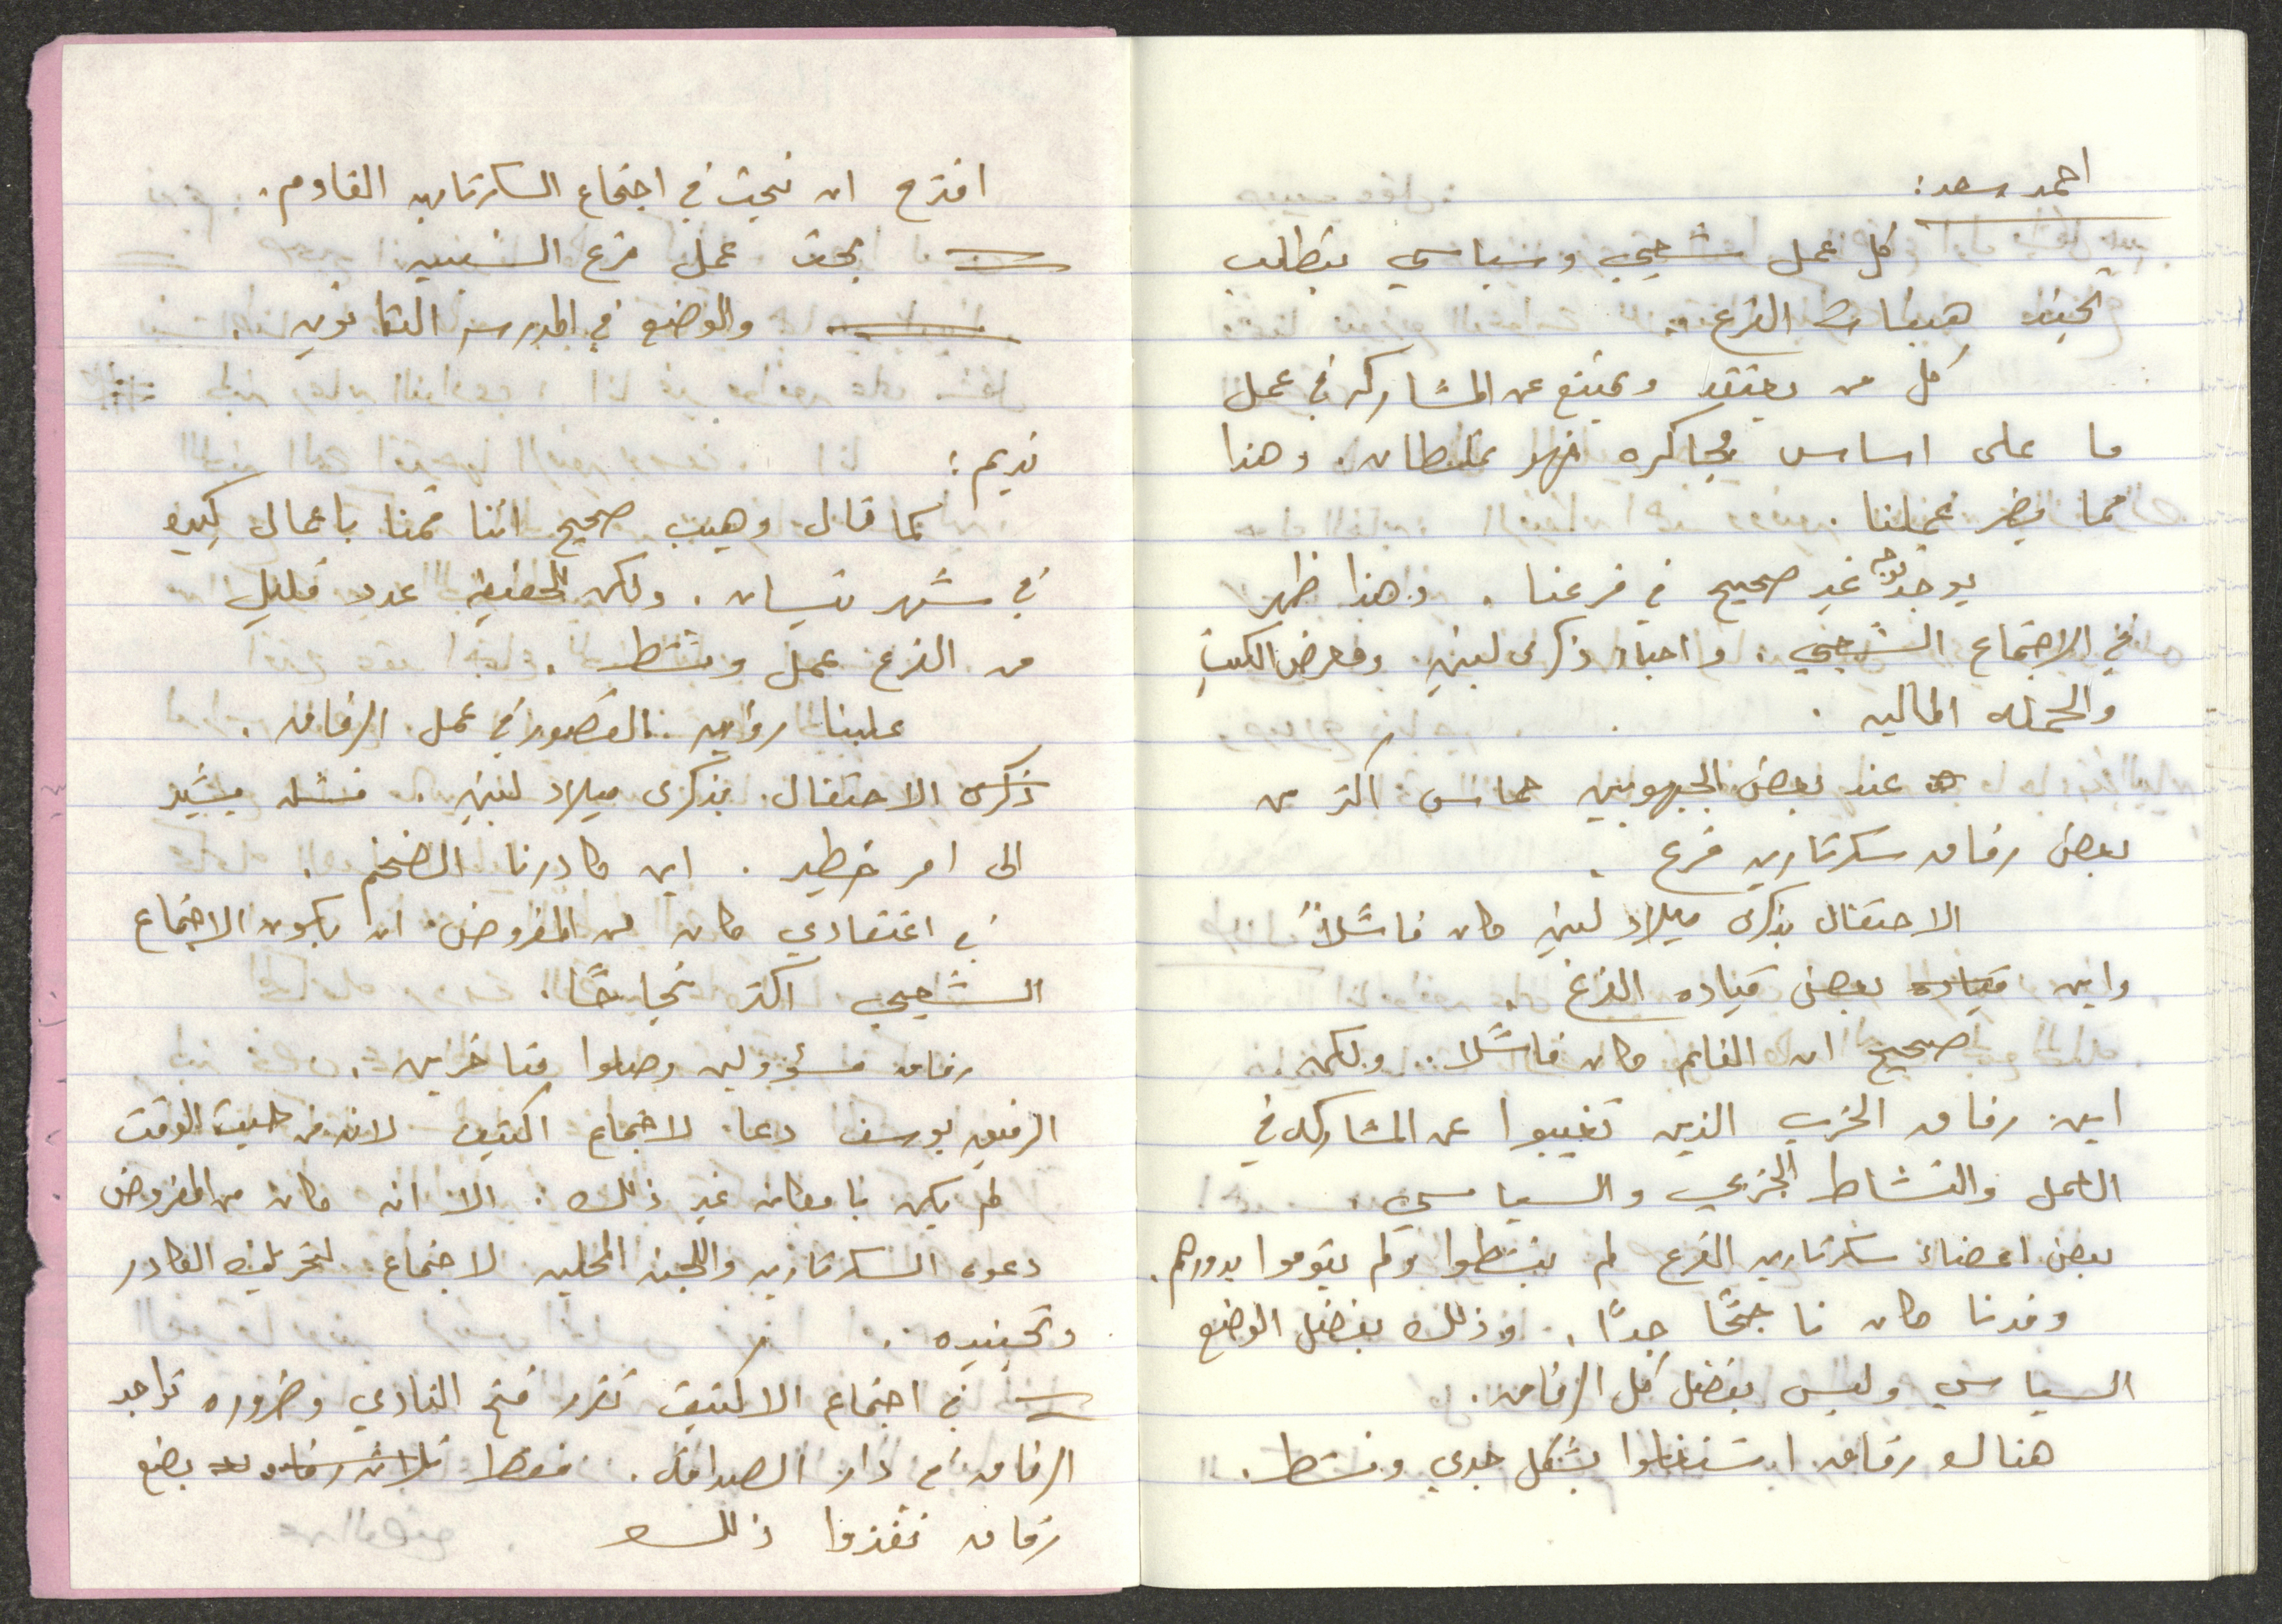 احمد سعد:
كل عمل شعبي وسياسي يتطلب
تجنيد هيئات الفرع.
كل من يعتقد ويمتنع عن المشاركه في عمل
ما على اساس مجاكره فهو غلطان. وهذا
مما يضر عملنا.
يوجد توجه غير صحيح في فرعنا. وهذا ظهر
في الاجتماع الشعبي. واحياء ذكرى لينين ومعرض الكتب
والحمله الماليه.
عند بعض الجبهويين حماس اكثر من
بعض رفاق سكرتارية فرع.
الاحتفال بذكرى ميلاد لينين كان فاشلاً
واين قياده بعض قياده الفرع.
صحيح ان الفلم كان فاشلا. ولكن
اين رفاق الحزب الذين تغيبوا عن المشاركه في
العمل والنشاط الحزبي والسياسي.
بعض اعضاء سكرتارية الفرع لم ينشطوا ولم يقوموا بدورهم.
وفدنا كان ناجحًا جدًا. وذلك بفضل الوضع
السياسي وليس بفضل كل الرفاق.
هنالك رفاق اشتغلوا بشكل جدي ونشط.
اقترح ان نبحث في اجتماع السكرتارية القادم.
بحث عمل فرع الشبيبه
والوضع في المدرسه الثانويه.
نديم:
كما قال وهيب صحيح اننا قمنا باعمال كبيره
في شهر نيسان. ولكن الحقيقه عدد قليل
من الفرع عمل ونشط.
علينا رؤية القصور في عمل الرفاق.
ذكرى الاحتفال بذكرى ميلاد لينين. فشله يشير
الى امر خطير. اين كادرنا الضخم.
في اعتقادي كان من المفروض ان يكون الاجتماع
الشعبي اكثر نجاحًا.
رفاق مسؤولين وصلوا متاخرين.
الرفيق يوسف دعا لاجتماع اكتيف لانه من حيث الوقت
لم يكن بامكانه غير ذلك. الا انه كان من المفروض
دعوة السكرتاريه واللجنه المحليه لاجتماع لتحريك الكادر
وتجنيده.
في اجتماع الاكتيف تقرر فتح النادي وضروره تواجد
الرفاق في دار الصداقه. فقط ثلاث رفاق بضع
رفاق نفذوا ذلك